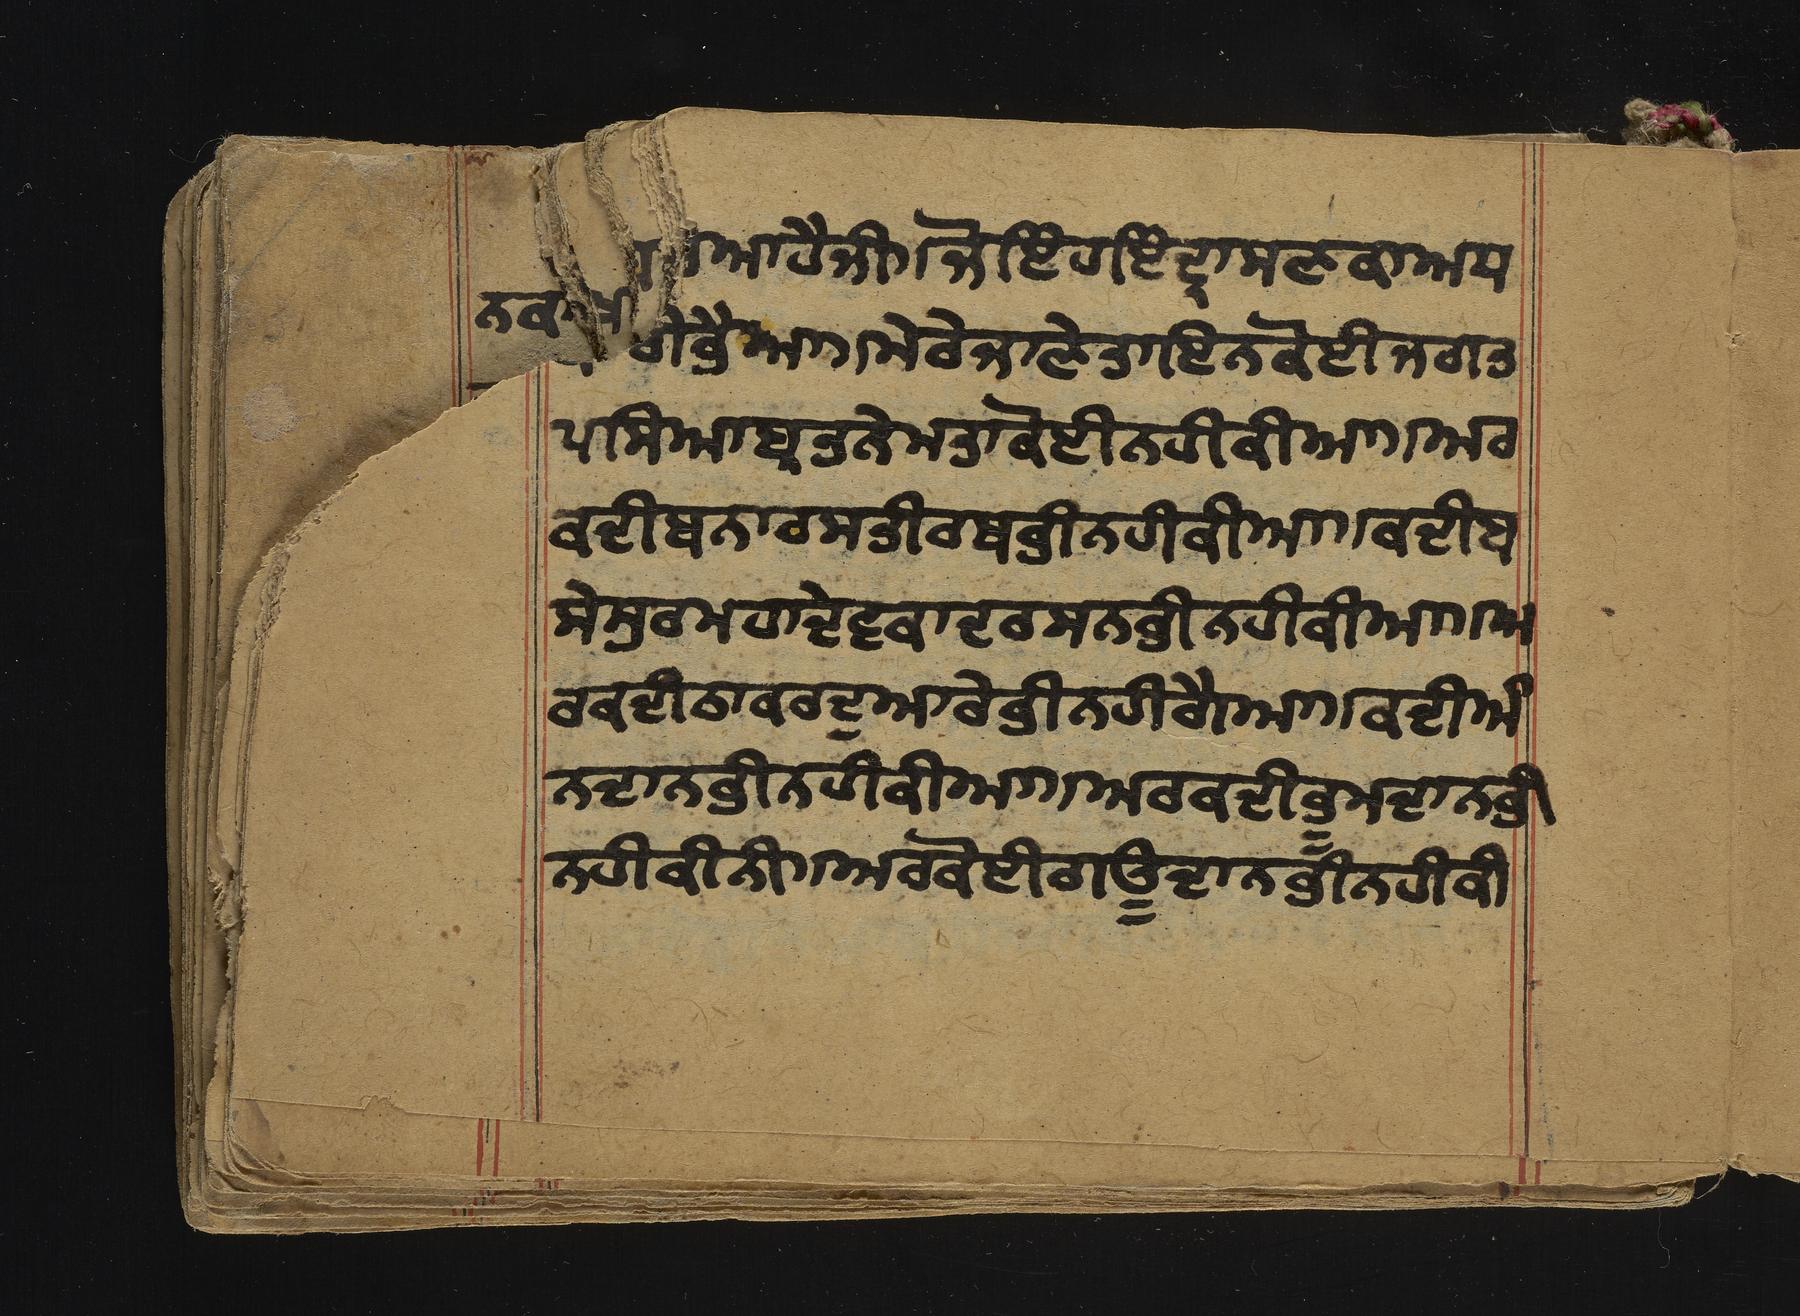 ਆਹੈਜੀ।ਜੋਇਹਇੰਦ੍ਰਾਸਣਕਾਅਧ
ਨਕ
ਗੋਤੈਆ॥ਮੇਰੇਜਾਣੇਤਾਇਨਕੋਈਜਗਤ
ਪਸਿਆਬ੍ਰਤਨੇਮਤਾਕੋਈਨਹੀਕੀਆ॥ਅਰ
ਕਦੀਬਨਾਰਸਤੀਰਥਭੀਨਹੀਕੀਆ॥ਕਦੀਬ
ਸੇਸੁਰਮਹਾਦੇਵਕਾਦਰਸਨਭੀਨਹੀਕੀਆ॥ਅ
ਰਕਦੀਠਾਕਰਦੁਆਰੇਭੀਨਹੀਗੈਆ॥ਕਦੀਅੰ
ਨਦਾਨਭੀਨਹੀਕੀਆ॥ਅਰਕਦੀਭੂਮਦਾਨਭੀ
ਨਹੀਕੀਨੀ॥ਅਰਕੋਈਗਊਦਾਨਭੀਨਹੀਕੀ